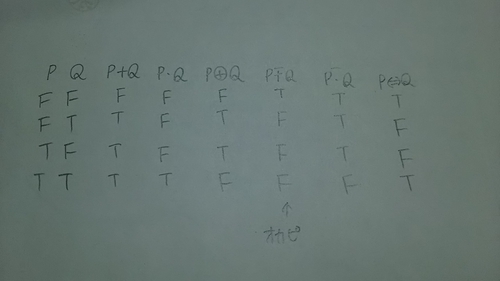 P Q P+Q P·Q P⊕Q P∓Q P⁻·Q P⇔Q
F F F F F T T T
F T T F T F T F
T F T F T F T F
T T T T F F F T
↑
オカピ